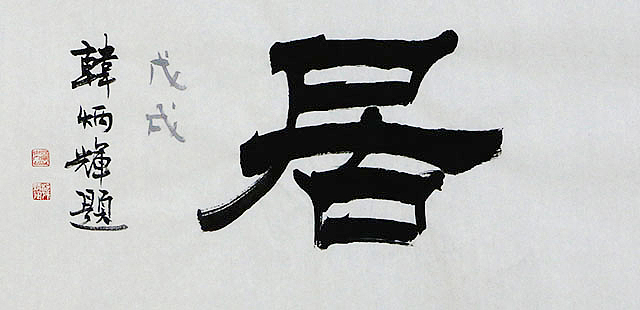 居
戊戌
韓炳輝題